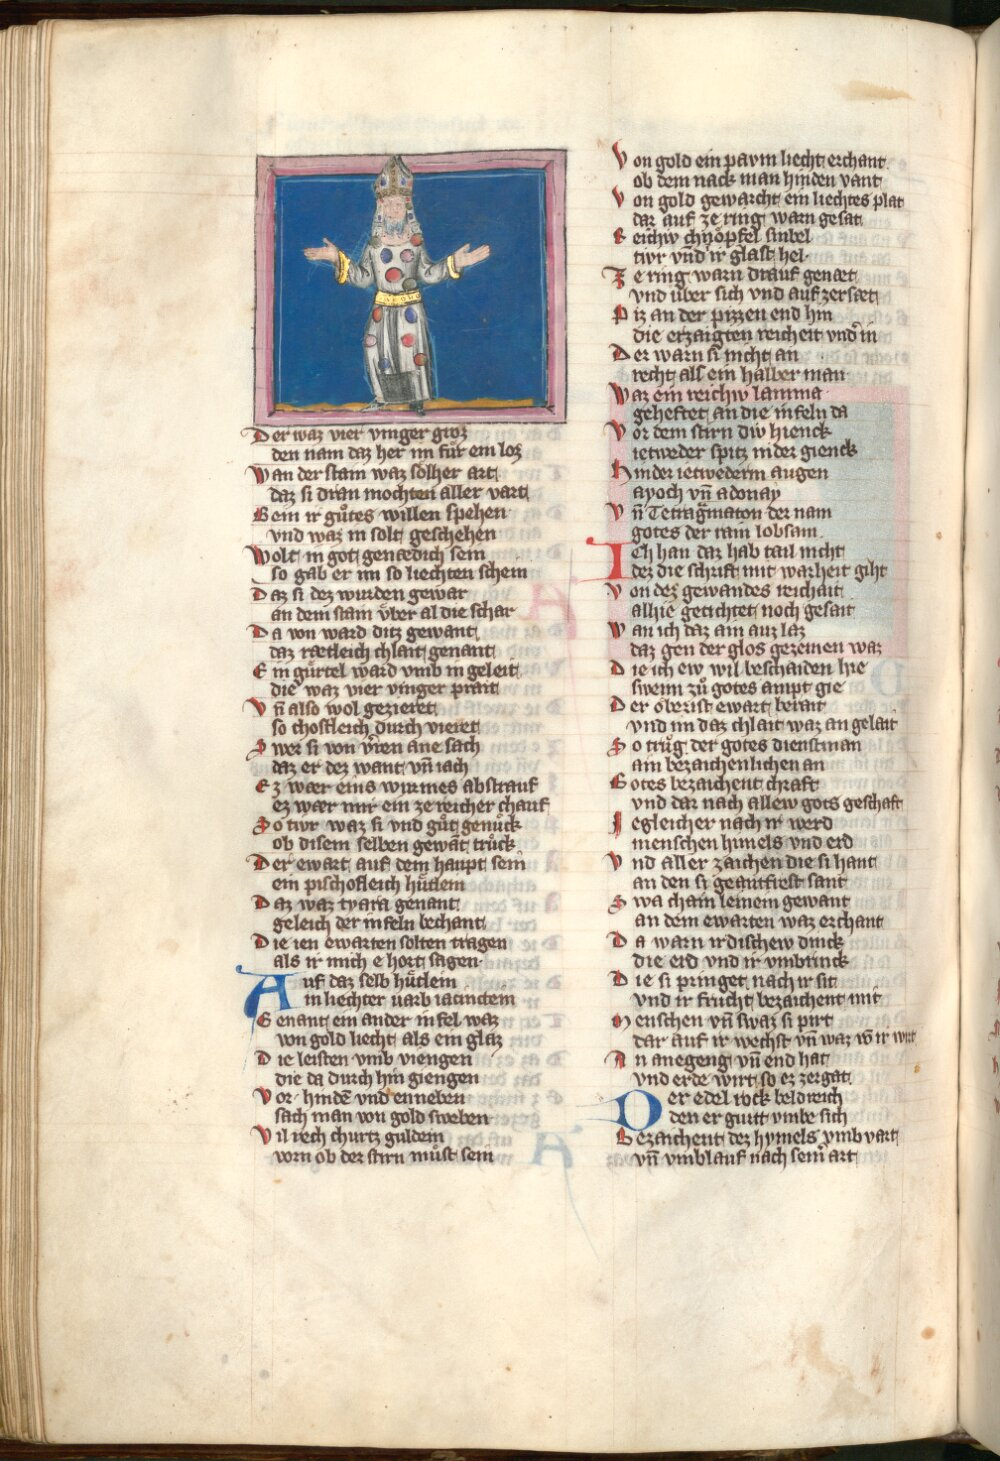 Der waz vier vinger groz
den nam daz her im für ein loz
Wan der stain waz sölher art
daz si dran mochten aller vart
Gein ir gůtes willen spehen
vnd waz in solt geschehen
Wolt in got genædich sein
so gab er im so liechten schein
Daz si dez wurden gewar
an dem stain über al die schar
Da von ward ditz gewant
daz rætleich chlait genant
Ein gürtel ward vmb in geleit
die waz vier vinger prait
Vñ also wol gezieret
so chostleich durch vieret
Swer si von verren ane sach
daz er dez want vñ iach
Ez wær eins wurmes abstrauf
ez wær mir ein ze reicher chauf
So tiwr waz si vnd gůt genůck
ob disem selben gewāt trůck
Der ewart auf dem haupt sein
ein pischofleich hütlein
Daz waz tyara genant
geleich der infeln bechant
Die ien ewarten solten tragen
als ir mich e hort sagen
Auf daz selb hütlein
in liechter varb iacinctein
Genant ein ander infel waz
von gold liecht als ein glaz
Die leisten vmb viengen
die da durch hin giengen
Vor hindē vnd enneben
sach man von gold sweben
Vil rech churtz guldein
vorn ob der stirn můst sein
Von gold ein pavm liecht erchant
ob dem nack man hinden vant
Von gold gewarcht ein liechtes plat
dar auf ze ring warn gesat
Reichw chnöpfel sinbel
tiwr vnd ir glast hel
Ze ring warn drauf genæt
vnd über sich vnd auf zersæt
Piz an der pizzen end hin
die erzaigten reicheit vnd in
Der warn si nicht an
recht als ein halber man
Waz ein reichw lamina
geheftet an die infeln da
Vor dem stirn diw hienck
ietweder spitz nider gienck
Hinder ietwederm augen
ayoch vñ adonay
Vñ Tetragramaton der nam
gotes der rain lobsam
Ich han daz hab tail nicht
dez die schrift mit warheit giht
Von dez gewandes reichait
alhie getichtet noch gesait
Wan ich daz ain auz laz
daz gen der glos gezemen waz
Die ich ew wil beschaiden hie
swenn zů gotes ampt gie
Der öberist ewart berait
vnd im daz chlait waz an gelait
So trůg der gotes dienstman
ain bezaichenlichen an
Gotes bezaichent chraft
vnd dar nach allew gots geschaft
Iegleicher nach ir werd
menschen himels vnd erd
Vnd aller zaichen die si hant
an den si geantfirst sant
Swa chain leinein gewant
an dem ewarten waz erchant
Da warn irdischew dinck
die erd vnd ir vmbrinck
Die si pringet nach ir sit
vnd ir frücht bezaichent mit
Menschen vñ swaz si pirt
dar auf ir wechst vñ waz vō ir wirt
An anegeng vñ end hat
vnd erde wirt so ez zergat
Der edel rock beldreich
den er gurtt vmbe sich
Bezaichent dez hymels vmb vart
vñ vmblauf nach seiner art